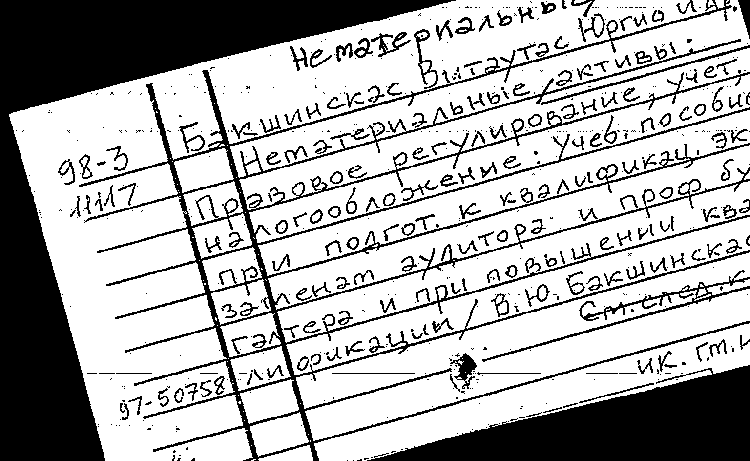 Нематериальные
Бакшинскас, Витаутас Юргио и др.
98-3
Нематериальные активы:
11117
Правовое регулирование, учет,
налогообложение: Учеб. пособие
при подгот. к квалификац. эк
заменам аудитора и проф. бу
галтера и при повышении ква
лификации / В.Ю. Бакшинскас
См. след. к
97-50758